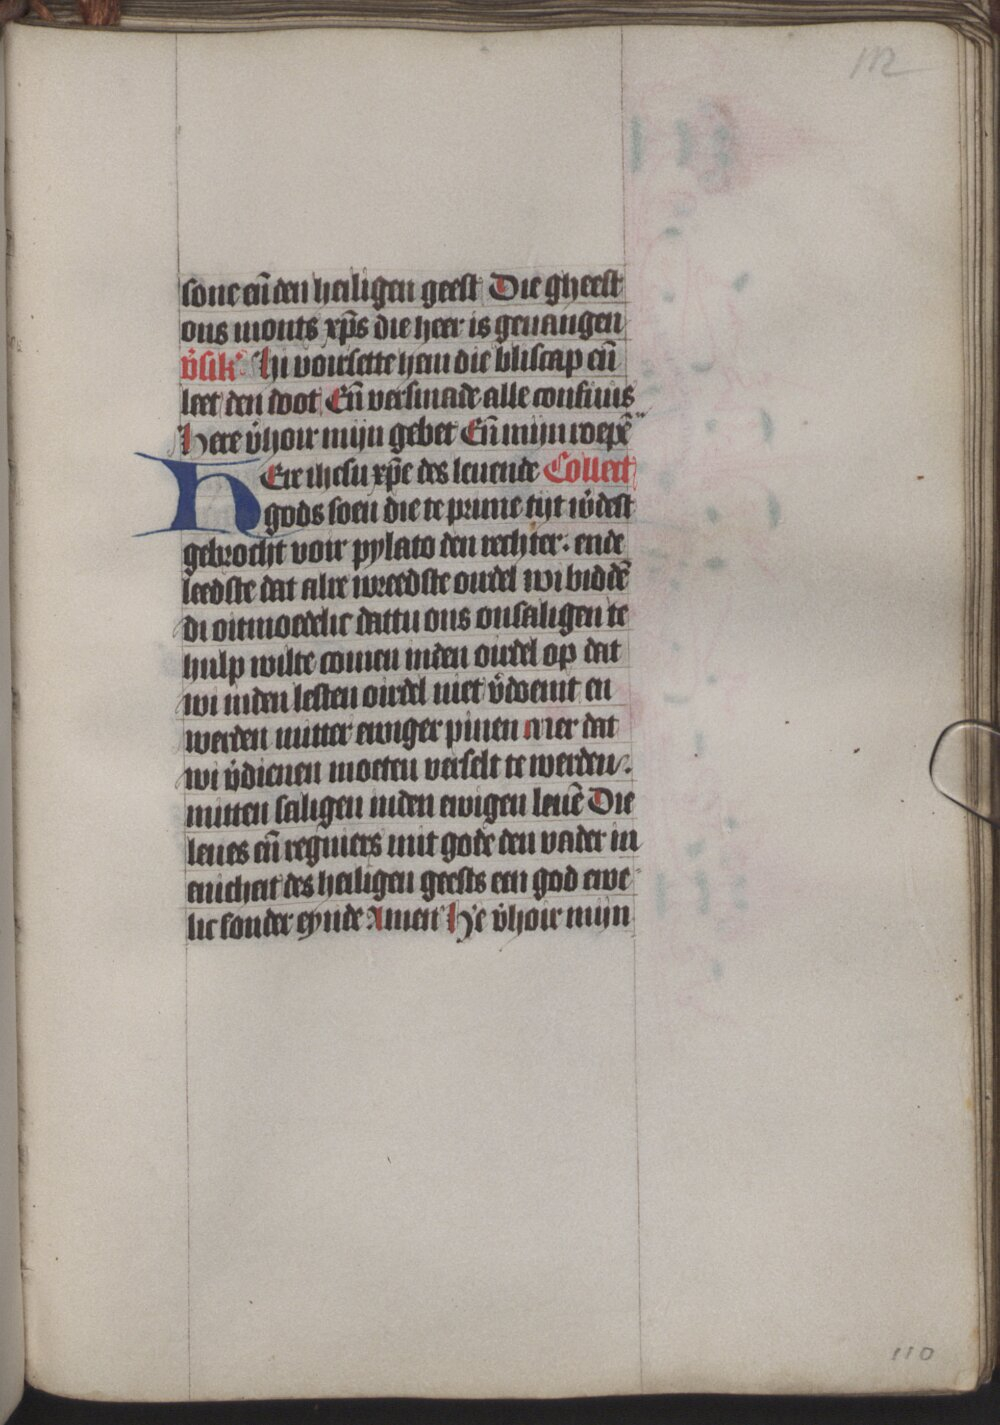 112
sone en̄ den heiligen geest Die gheest
ons monts xp̄s die heer is geuangen
v̓sik͛ Hi voirsette hem die bliscap en̄
leet den doot En̄ versmade alle confuus
Here v̓hoir mijn gebet En̄ mijn roepē
HEre ihesu xp̄e des leuende Collect
gods soen die te prime tijt w̓dest
gebrocht voir pylato den rechter. ende
leedste dat alre wreedste ordel wi biddē
di oitmoedelic dattu ons onsaligen te
hulp wilte comen inden ordel op dat
wi inden lesten oirdel niet v̓doemt en
werden mitter ewiger pinen mer dat
wi v̓dienen moeten verselt te werden.
mitten saligen inden ewigen leuē Die
leues en̄ regniers mit gode den vader in
enicheit des heiligen geests een god ewe
lic sonder eynde Amen He v̓hoir mijn
110